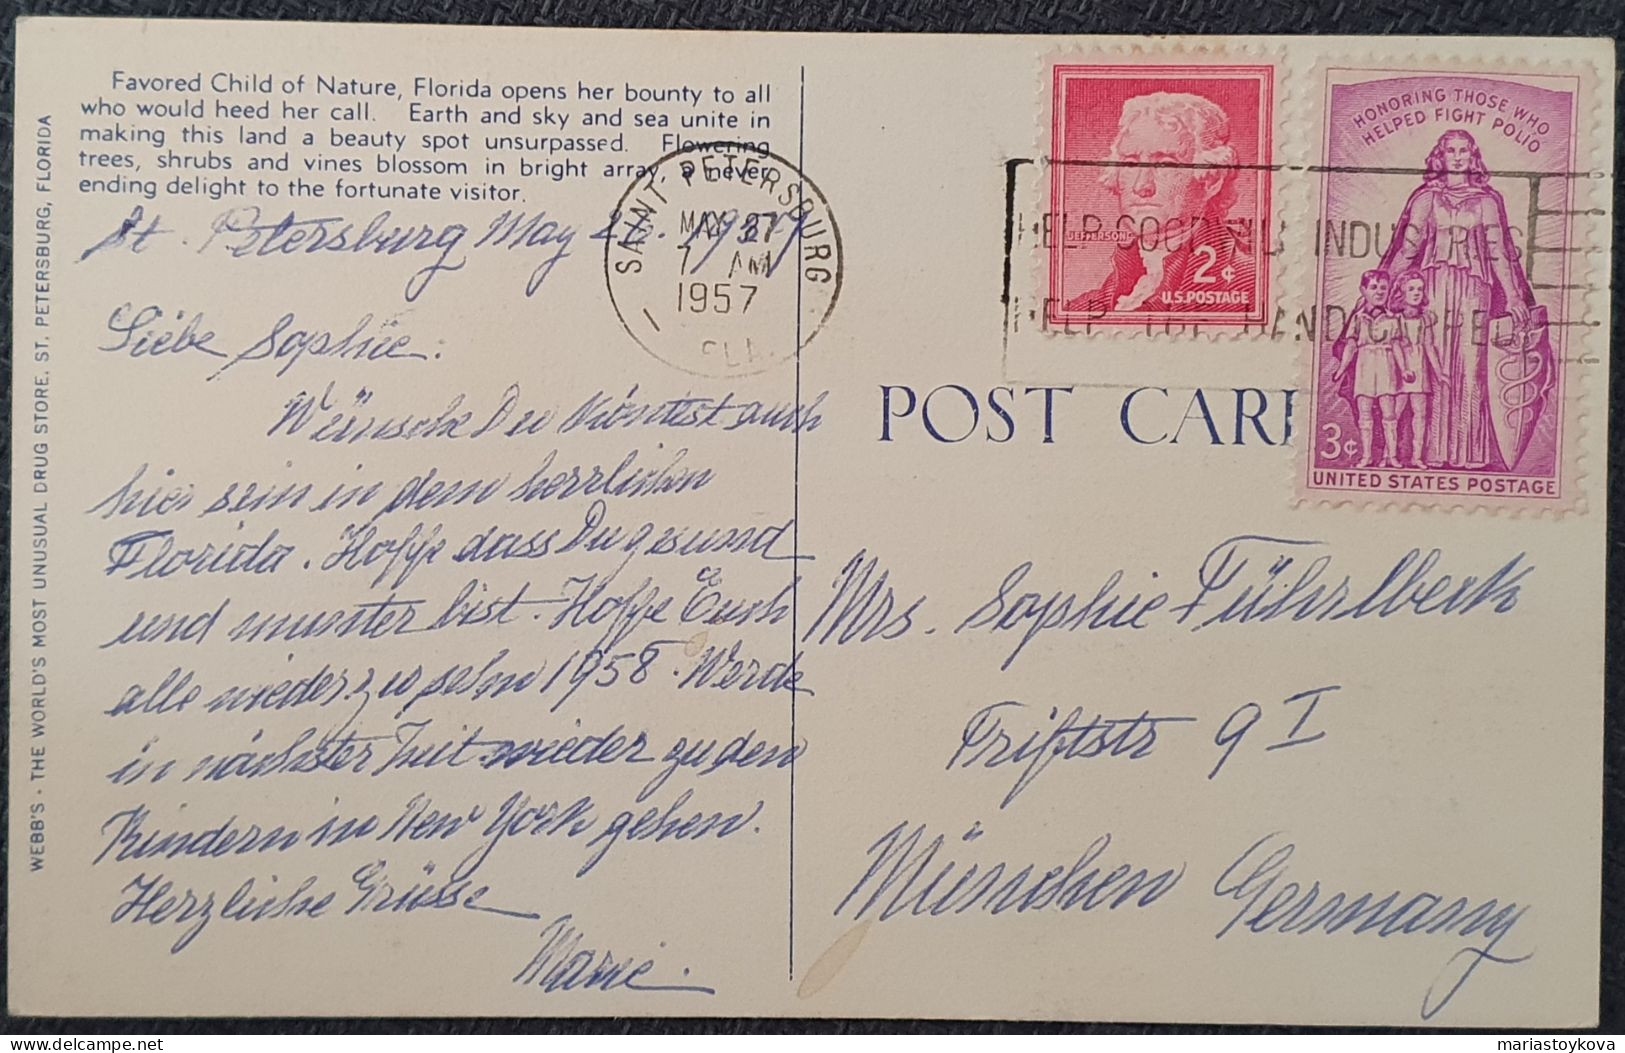 Favored Child of Nature, Florida opens her bounty to all
who would heed her call. Earth and sky and sea unite in
making this land a beauty spot unsurpassed. Flowering
trees, shrubs and vines blossom in bright array, a never
ending delight to the fortunate visitor.
WEBB'S - THE WORLD'S MOST UNUSUAL DRUG STORE, ST. PETERSBURG, FLORIDA
St. Petersburg May 26.
Liebe Sophie:
Wünsche Du könntest auch
hier sein in dem herrlichen
Florida. Hoffe dass Du gesund
und munter bist. Hoffe Euch
alle wieder zu sehn 1958. Werde
in nächster Zeit wieder zu den
Kindern in New York gehen.
Herzliche Grüsse
Marie.
SAINT PETERSBURG
MAY 27
7 AM
1957
FLA.
HELP GOODWILL INDUSTRIES
HELP THE HANDICAPPED
JEFFERSON
2¢
U.S. POSTAGE
HONORING THOSE WHO
HELPED FIGHT POLIO
3¢
UNITED STATES POSTAGE
POST CAR
Mrs. Sophie Führlbeck
Triftstr 9 I
München Germany
mariastoykova